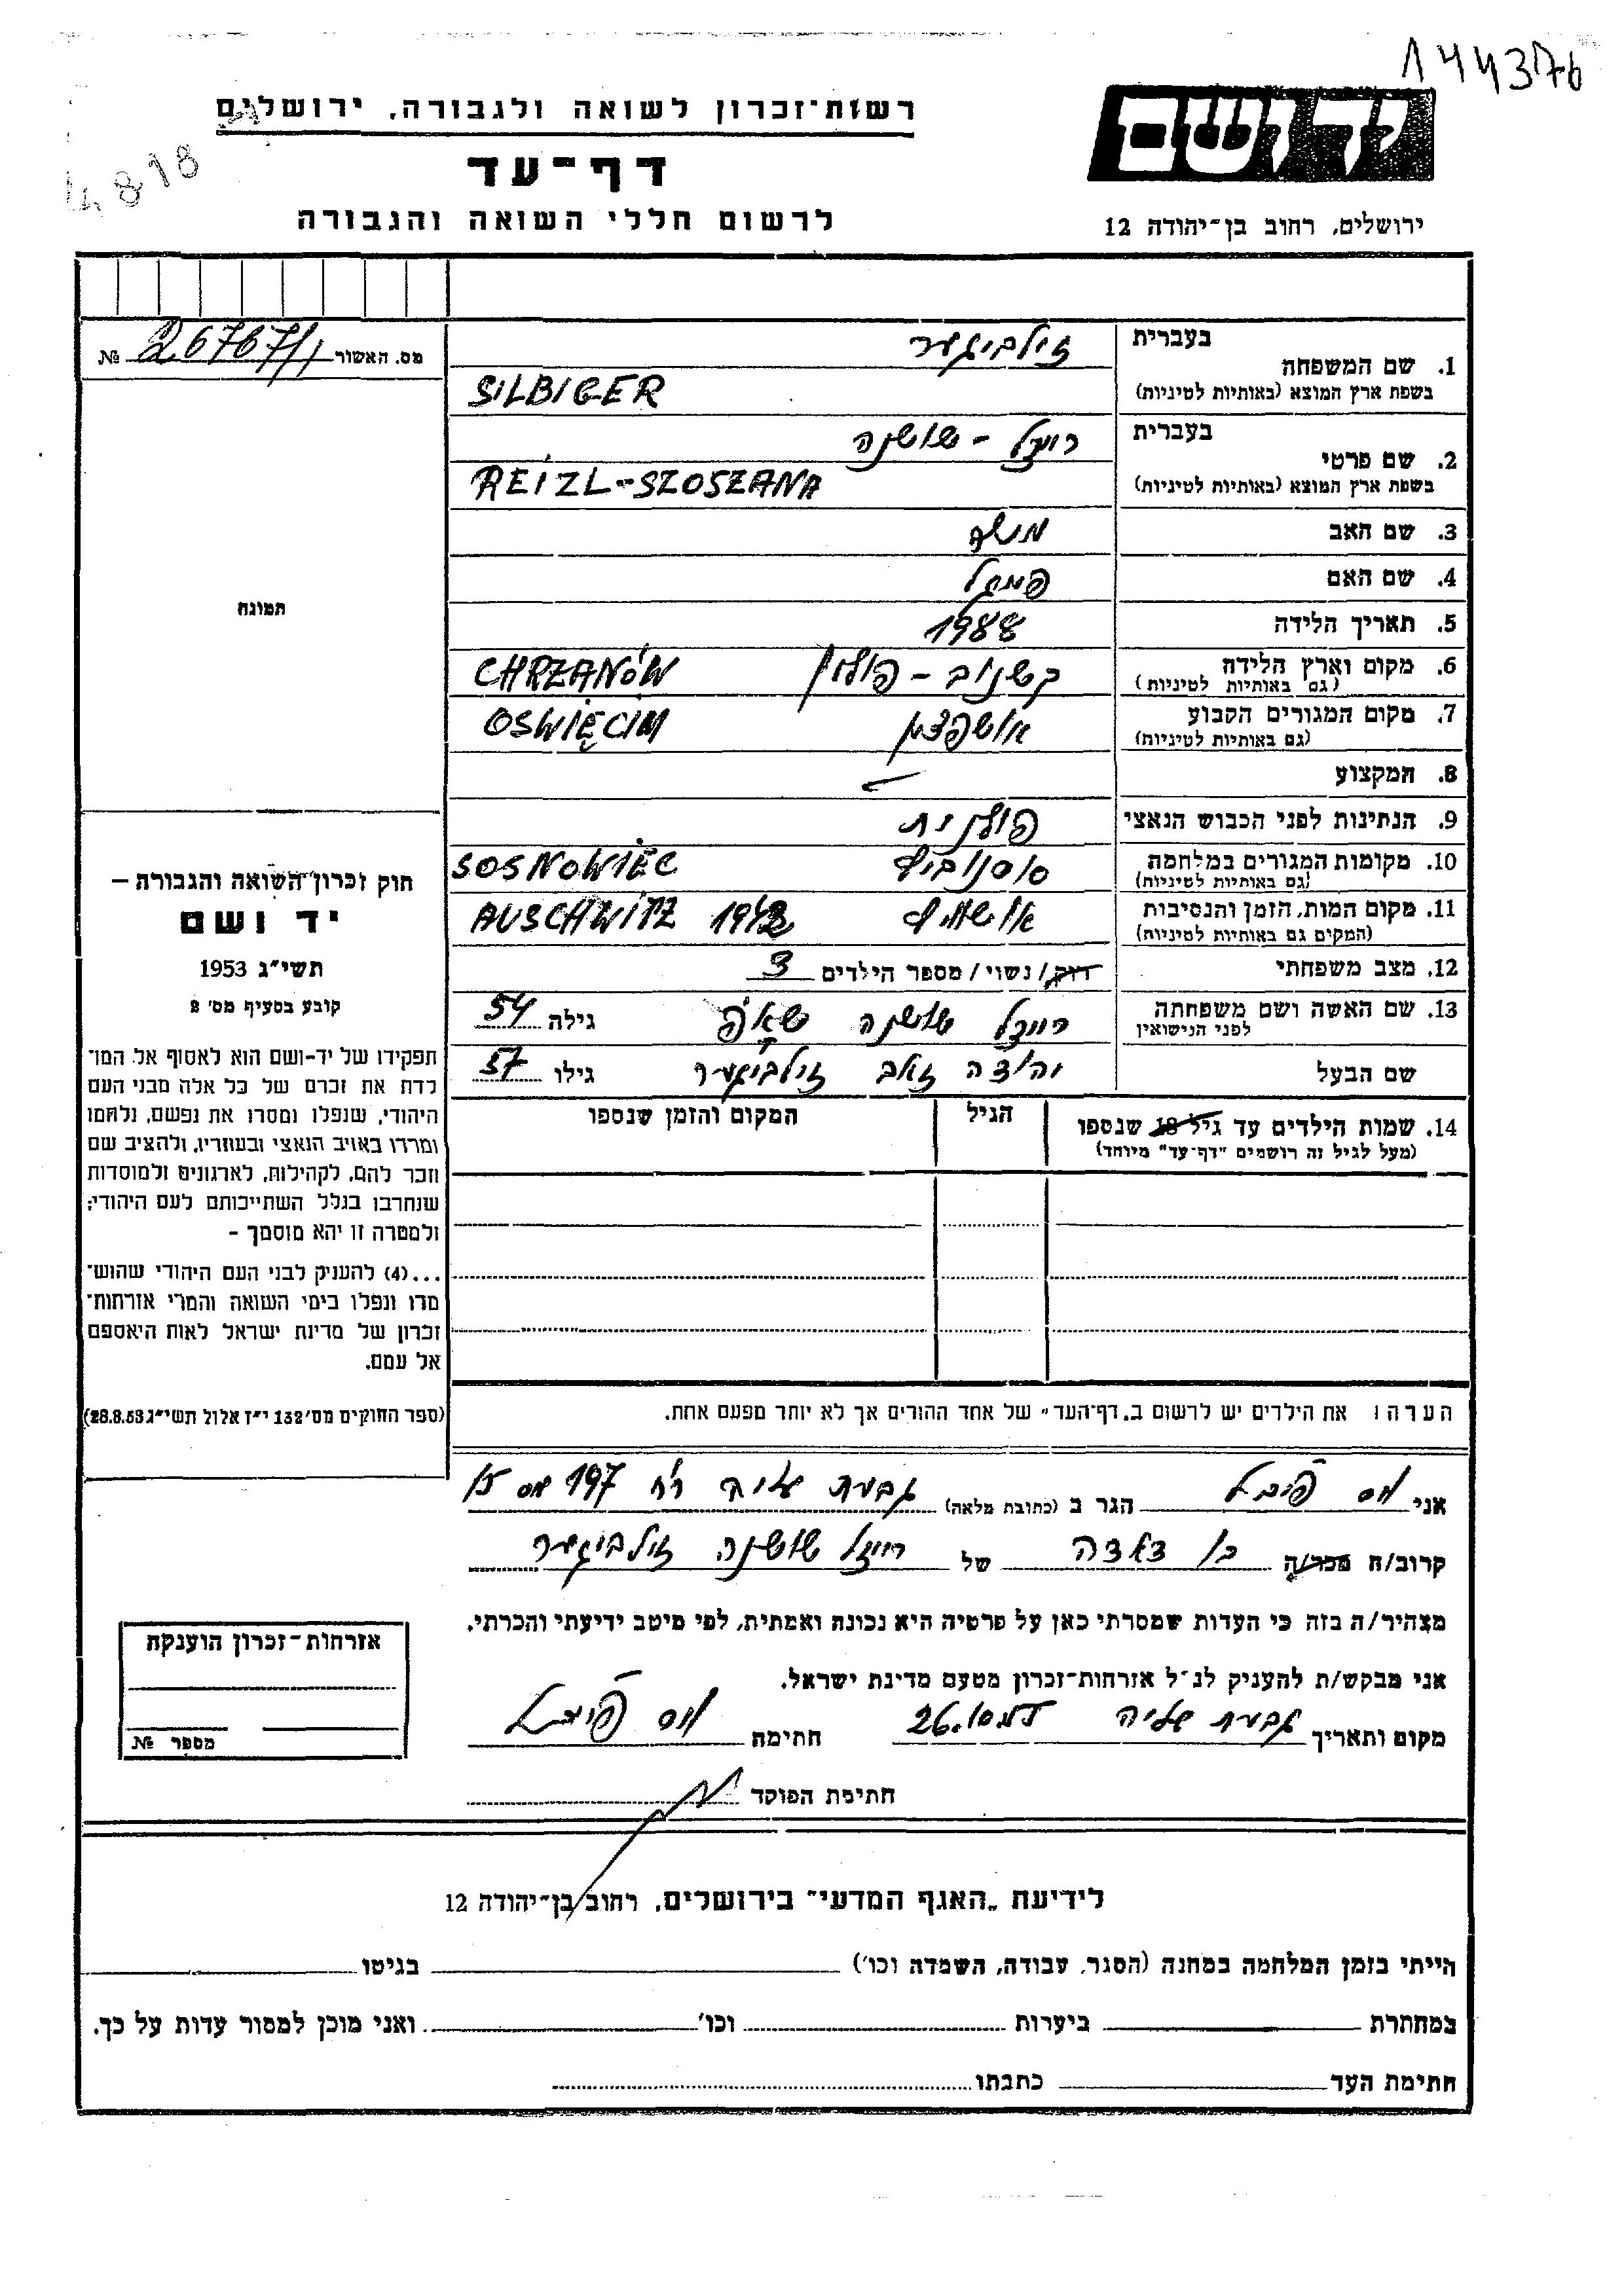 144376
רשות־זכרון לשואה ולגבורה, ירושלים
דף־עד
לרשום חללי השואה והגבורה
ידושם
ירושלים, רחוב בן־יהודה 12
4818
מס. האשור № 26767/1
1. שם המשפחה
בעברית זילביגער
בשפת ארץ המוצא (באותיות לטיניות) SILBIGER
2. שם פרטי
בעברית רייזל - שושנה
בשפת ארץ המוצא (באותיות לטיניות) REIZL-SZOSZANA
3. שם האב משה
4. שם האם
5. תאריך הלידה 1988
6. מקום וארץ הלידה קשנוב - פולין CHRZANÓW
(גם באותיות לטיניות)
7. מקום המגורים הקבוע אושפצין OSWIĘCIM
(גם באותיות לטיניות)
8. המקצוע
9. הנתינות לפני הכבוש הנאצי פולנית
10. מקומות המגורים במלחמה סוסנוביץ SOSNOWIEC
(גם באותיות לטיניות)
11. מקום המות, הזמן והנסיבות אושויץ AUSCHWITZ 1942
(המקום גם באותיות לטיניות)
12. מצב משפחתי רווק/ נשוי/ מספר הילדים 3
13. שם האשה ושם משפחתה רייזל שושנה גילה 54
לפני הנישואין
שם הבעל יהודה זאב זילביגער גילו 57
14. שמות הילדים עד גיל 18 שנספו הגיל המקום והזמן שנספו
(מעל לגיל זה רושמים "דף־עד" מיוחד)
הערה: את הילדים יש לרשום ב„דף־העד" של אחד ההורים אך לא יותר מפעם אחת.
תמונה
חוק זכרון השואה והגבורה —
יד ושם
תשי"ג 1953
קובע בסעיף מס' 2
תפקידו של יד-ושם הוא לאסוף אל המו־
לדת את זכרם של כל אלה מבני העם
היהודי, שנפלו ומסרו את נפשם, נלחמו
ומרדו באויב הנאצי ובעוזריו, ולהציב שם
וזכר להם, לקהילות, לארגונים ולמוסדות
שנחרבו בגלל השתייכותם לעם היהודי;
ולמטרה זו יהא מוסמך -
...(4) להעניק לבני העם היהודי שהוש־
מדו ונפלו בימי השואה והמרי אזרחות־
זכרון של מדינת ישראל לאות היאספם
אל עמם.
(ספר החוקים מס' 132 י"ז אלול תשי"ג 28.8.53)
אני הגר ב (כתובת מלאה) גבעת עליה רח 197 מס 15
קרוב/ה מכר/ה בן דודה של רייזל שושנה זילביגער
מצהיר/ה בזה כי העדות שמסרתי כאן על פרטיה היא נכונה ואמתית, לפי מיטב ידיעתי והכרתי.
אני מבקש/ת להעניק לנ"ל אזרחות־זכרון מטעם מדינת ישראל.
מקום ותאריך גבעת עליה חתימה
חתימת הפוקד
אזרחות־זכרון הוענקה
מספר №
לידיעת „האגף המדעי" בירושלים, רחוב בן־יהודה 12
הייתי בזמן המלחמה במחנה (הסגר, עבודה, השמדה וכו') בגיטו
במחתרת ביערות וכו' ואני מוכן למסור עדות על כך.
חתימת העד כתבתו